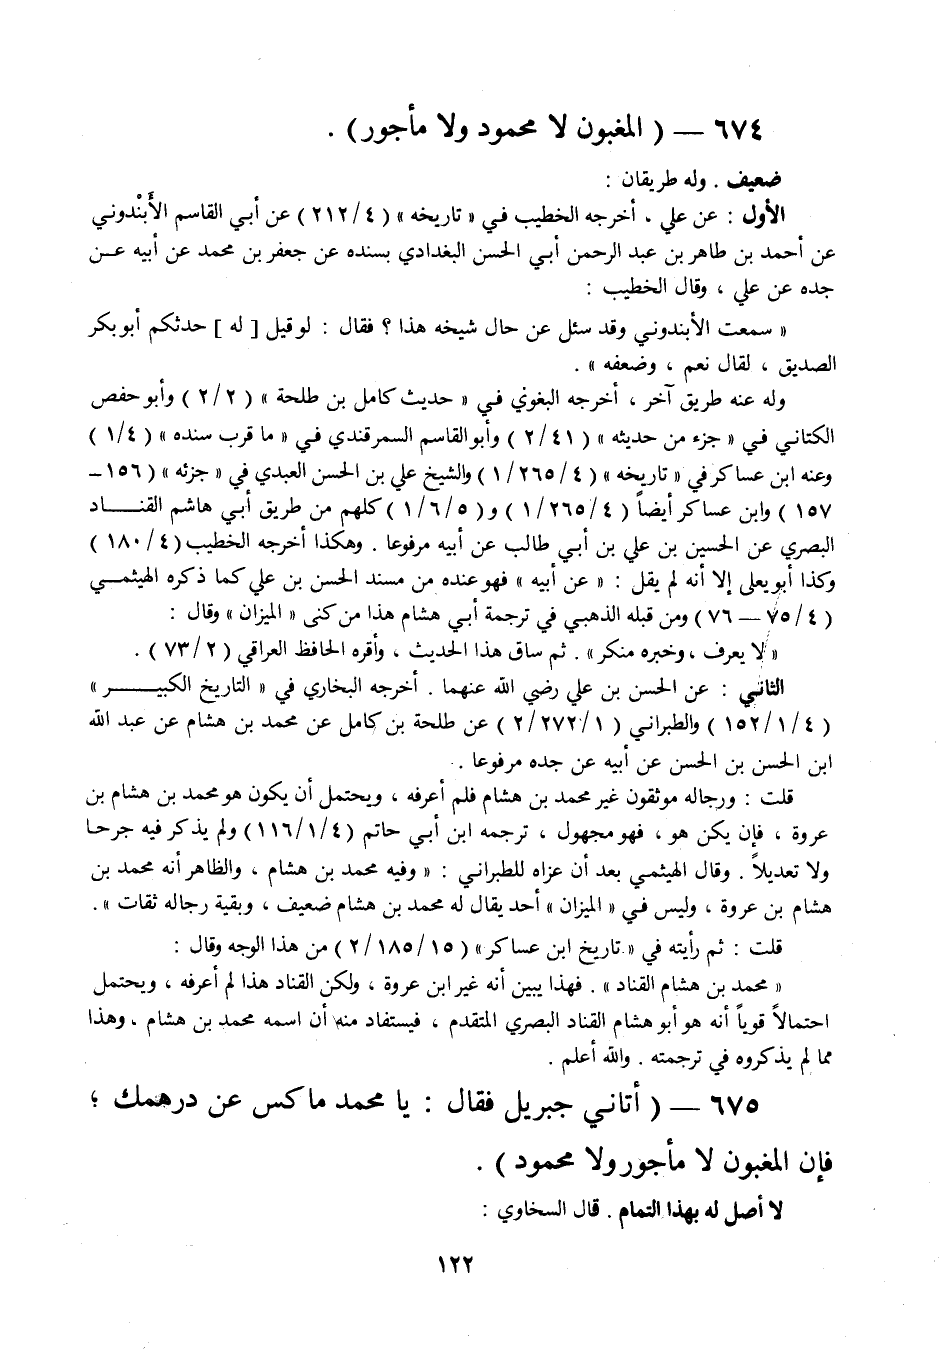 ٦٧٤ — ( المغبون لا محمود ولا مأجور) .
ضعيف . وله طريقان :
الأول : عن علي ، أخرجه الخطيب في « تاريخه » ( ٤/ ٢١٢ ) عن أبي القاسم الأَبَنْدوني
عن أحمد بن طاهر بن عبد الرحمن أبي الحسن البغدادي بسنده عن جعفر بن محمد عن أبيه عـن
جده عن علي ، وقال الخطيب :
« سمعت الأبندوني وقد سئل عن حال شيخه هذا ؟ فقال : لو قيل [ له ] حدثكم أبو بكر
الصديق ، لقال نعم ، وضعفه » .
وله عنه طريق آخر ، أخرجه البغوي في « حديث كامل بن طلحة » ( ٢/ ٢ ) وأبو حفص
الكتاني في « جزء من حديثه » ( ٤١/ ٢ ) وأبو القاسم السمرقندي في « ما قرب سنده » ( ٤/ ١ )
وعنه ابن عساكر في « تاريخه » ( ٤/ ٢٦٥/ ١ ) والشيخ علي بن الحسن العبدي في « جزئه » ( ١٥٦ –
١٥٧ ) وابن عساكر أيضاً ( ٤/ ٢٦٥/ ١ ) و ( ٥/ ٦/ ١ ) كلهم من طريق أبي هاشم القنـــاد
البصري عن الحسين بن علي بن أبي طالب عن أبيه مرفوعا . وهكذا أخرجه الخطيب ( ٤/ ١٨٠ )
وكذا أبو يعلى إلا أنه لم يقل : « عن أبيه » فهو عنده من مسند الحسن بن علي كما ذكره الهيثمـي
( ٤/ ٧٥ — ٧٦ ) ومن قبله الذهبي في ترجمة أبي هشام هذا من كنى « الميزان » وقال :
« لا يعرف ، وخبره منكر » . ثم ساق هذا الحديث ، وأقره الحافظ العراقي ( ٢/ ٧٣ ) .
الثاني : عن الحسن بن علي رضي الله عنهما . أخرجه البخاري في « التاريخ الكبيـــر »
( ٤/ ١/ ١٥٢ ) والطبراني ( ١/ ٢٧٢/ ٢ ) عن طلحة بن كامل عن محمد بن هشام عن عبد الله
ابن الحسن بن الحسن عن أبيه عن جده مرفوعا .
قلت : ورجاله موثقون غير محمد بن هشام فلم أعرفه ، ويحتمل أن يكون هو محمد بن هشام بن
عروة ، فإن يكن هو ، فهو مجهول ، ترجمه ابن أبي حاتم ( ٤/ ١/ ١١٦ ) ولم يذكر فيه جرحا
ولا تعديلاً . وقال الهيثمي بعد أن عزاه للطبراني : « وفيه محمد بن هشام ، والظاهر أنه محمد بن
هشام بن عروة ، وليس في « الميزان » أحد يقال له محمد بن هشام ضعيف ، وبقية رجاله ثقات » .
قلت : ثم رأيته في « تاريخ ابن عساكر » ( ١٥/ ١٨٥/ ٢ ) من هذا الوجه وقال :
« محمد بن هشام القناد » . فهذا يبين أنه غير ابن عروة ، ولكن القناد هذا لم أعرفه ، ويحتمل
احتمالاً قوياً أنه هو أبو هشام القناد البصري المتقدم ، فيستفاد منه أن اسمه محمد بن هشام . وهذا
مما لم يذكروه في ترجمته . والله أعلم .
٦٧٥ — ( أتاني جبريل فقال : يا محمد ماكس عن درهمك ؛
فإن المغبون لا مأجور ولا محمود ) .
لا أصل له بهذا التمام . قال السخاوي :
١٢٢